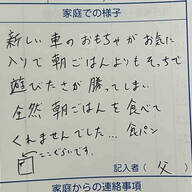 家庭での様子
新しい車のおもちゃがお気に
入りで朝ごはんよりもそっちで
遊びたさが勝ってしまい
全然朝ごはんを食べて
くれませんでした…食パン
ここぐらいです。
記入者（父）
家庭からの連絡事項